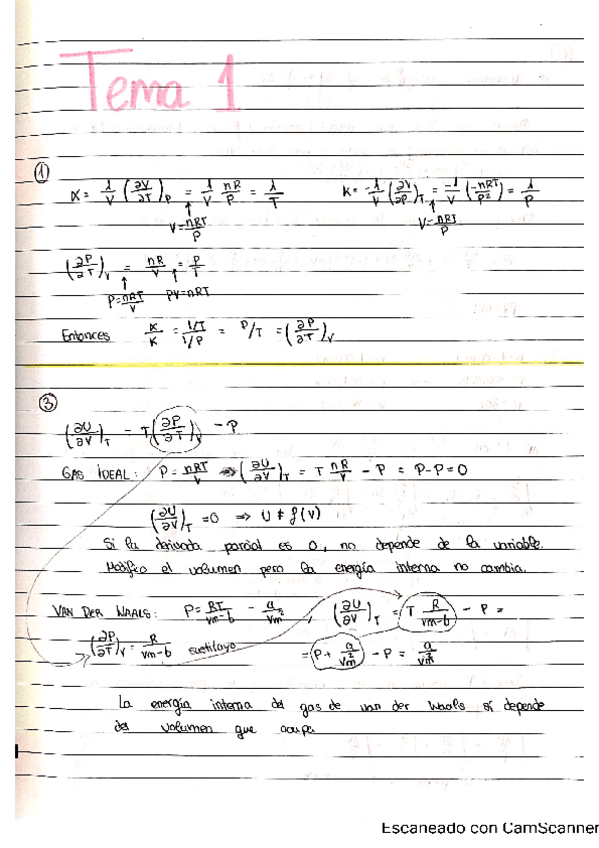 Tema 1
①
α = 1/V (∂V/∂T)_P = 1/V nR/P = 1/T    K = -1/V (∂V/∂P)_T = -1/V (-nRT/P²) = 1/P
↑ V = nRT/P    ↑ V = nRT/P
(∂P/∂T)_V = nR/V = P/T
↑ P = nRT/V    ↑ PV = nRT
Entonces α/K = 1/T / 1/P = P/T = (∂P/∂T)_V
③
(∂U/∂V)_T = T (∂P/∂T)_V - P
GAS IDEAL: P = nRT/V ⇒ (∂U/∂V)_T = T nR/V - P = P - P = 0
(∂U/∂V)_T = 0 ⇒ U ≠ f(V)
Si la derivada parcial es 0, no depende de la variable.
Modifico el volumen pero la energía interna no cambia.
VAN DER WAALS: P = RT/Vm-b - a/Vm², (∂U/∂V)_T = T R/Vm-b - P =
(∂P/∂T)_V = R/Vm-b sustituyo = P + a/Vm² - P = a/Vm²
La energía interna del gas de van der Waals sí depende
del volumen que ocupa
Escaneado con CamScanner